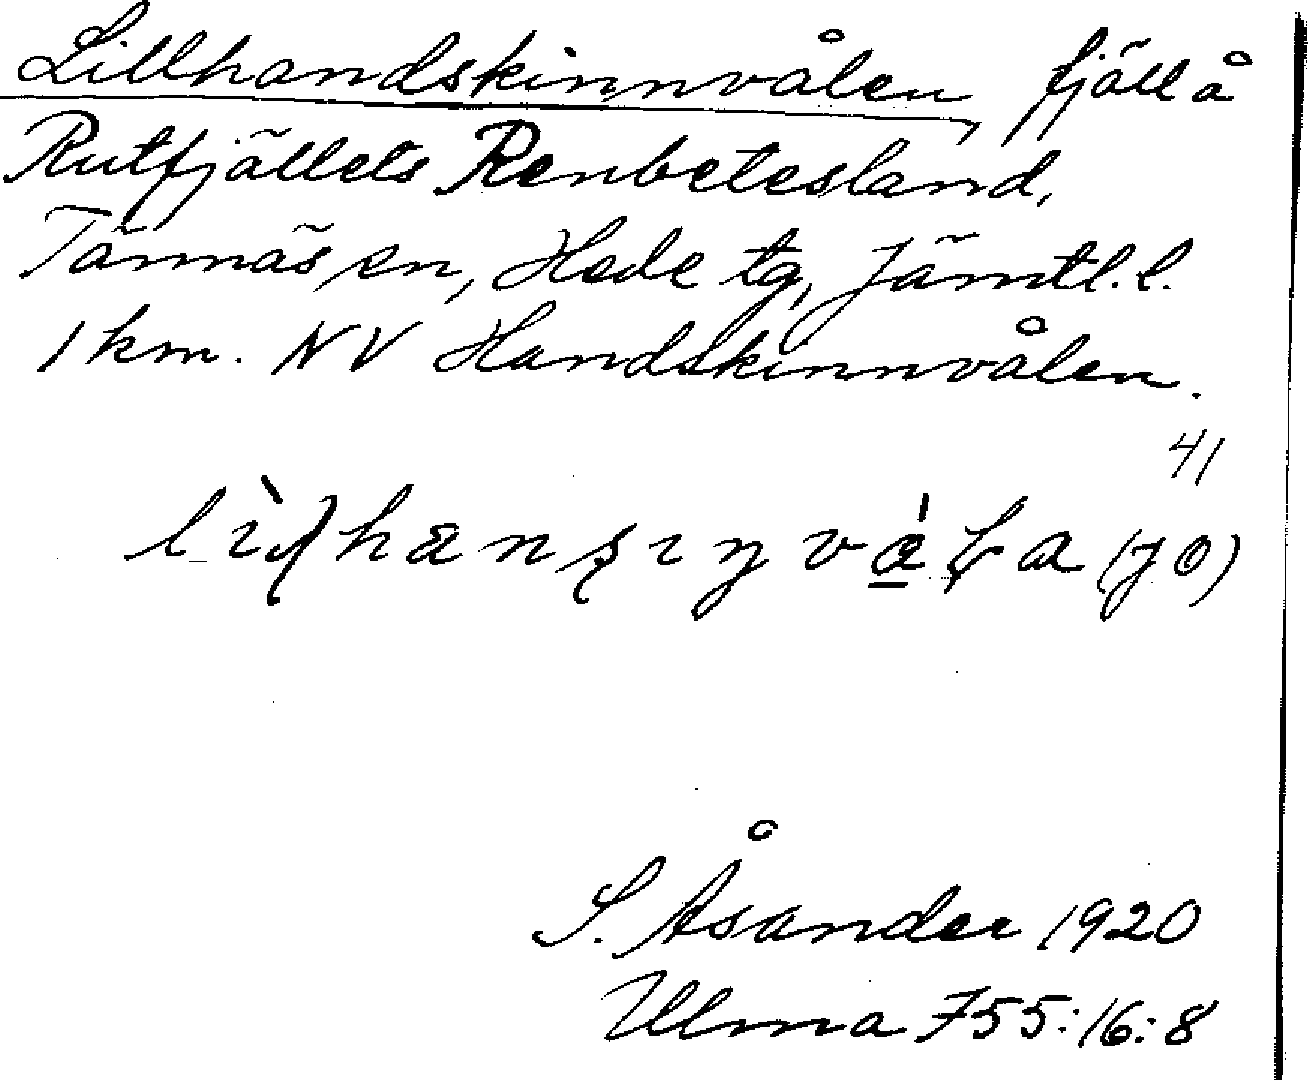 Lillhandskinnvålen, fjäll å
Rutfjällets Renbetesland,
Tännäs sn, Hede tg, Jämtl. l.
1 km. NV Handskinnvålen.
41
S. Åsander 1920
Ulma 755:16:8